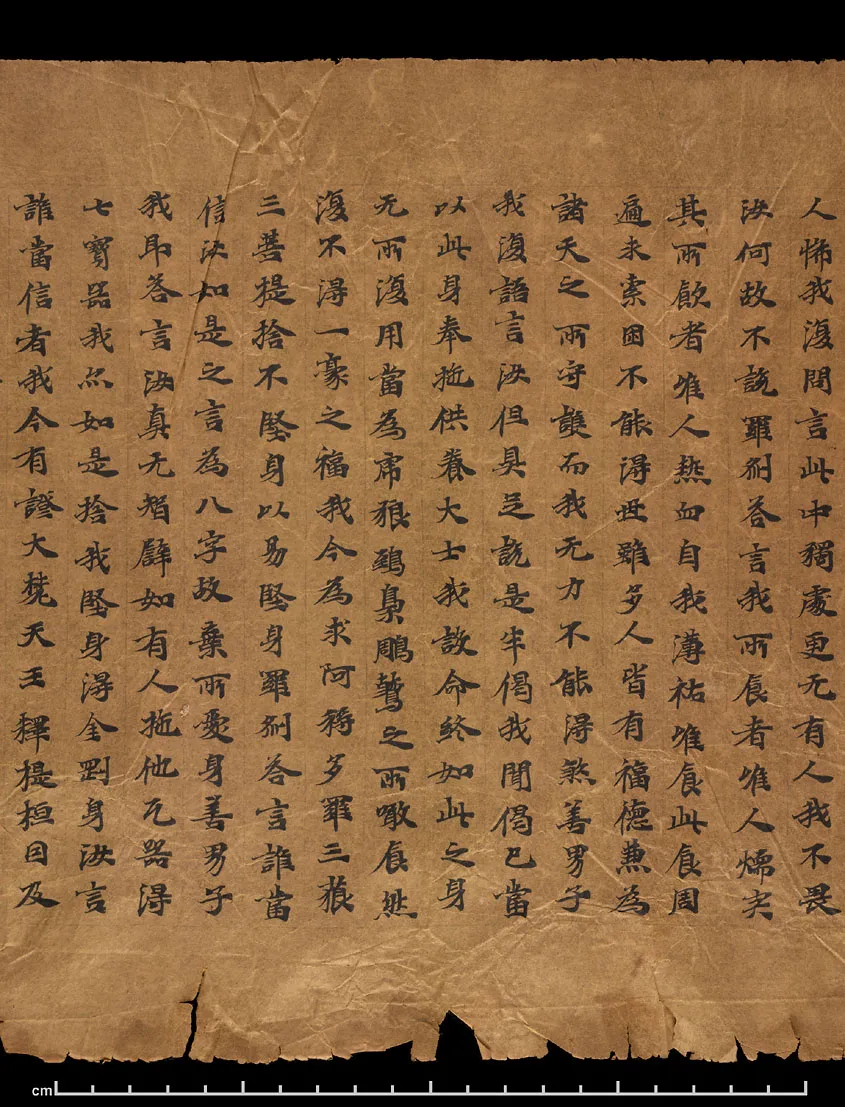 人怖我復問言此中獨處更无有人我不畏
汝何故不說羅剎答言我所食者唯人煗宍
其所飲者唯人熱血自我薄祐唯食此食周
遍求索困不能得世雖多人皆有福德兼為
諸天之所守護而我无力不能得煞善男子
我復語言汝但具足說是半偈我聞偈已當
以此身奉施供養大士我設命終如此之身
无所復用當為虎狼鵄梟鵰鷲之所噉食然
復不得一豪之福我今為求阿耨多羅三藐
三菩提捨不堅身以易堅身羅剎答言誰當
信汝如是之言為八字故棄所愛身善男子
我即答言汝真无智譬如有人施他瓦器得
七寶器我亦如是捨我堅身得金剛身汝言
誰當信者我今有證大梵天王釋提桓因及
cm